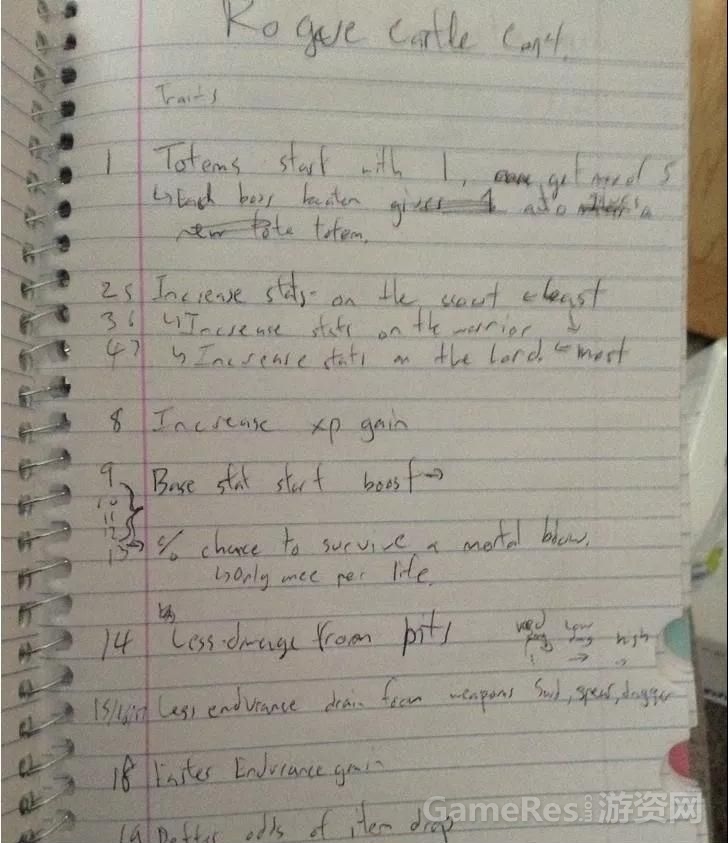 Rogue Castle Cont.
Traits
1 Totems start with 1, get 5
↳ Each boss beaten gives a
totem.
25 Increase stats on the scout ← least
36 ↳ Increase stats on the warrior ↓
47 ↳ Increase stats on the lord. ← most
8 Increase xp gain
9 Base stat start boost →
10
11
12
13 → % chance to survive a mortal blow.
↳ Only once per life.
14 Less damage from pits high
15/16/17 Less endurance drain from weapons Swd, spear, dagger
18 Faster Endurance gain
19 Better odds of item drop
GameRes.com 游资网